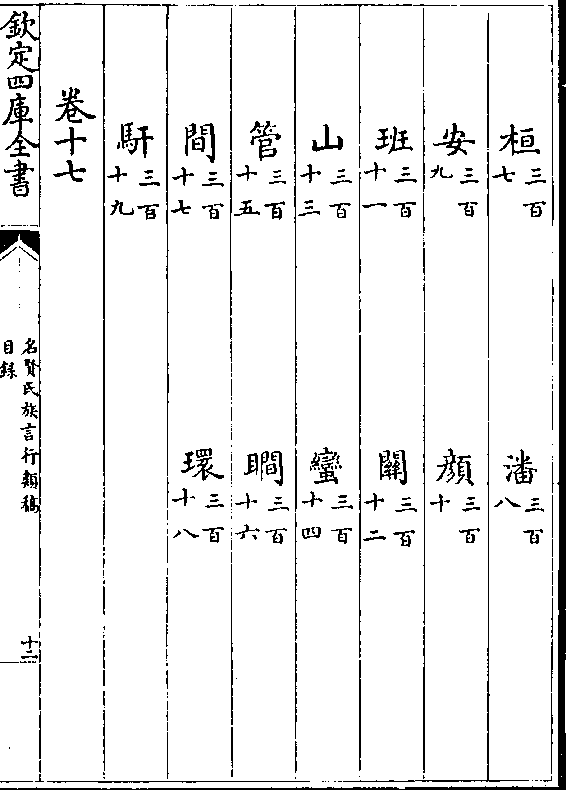 桓三百七 潘三百八
安三百九 顔三百十
班三百十一 關三百十二
山三百十三 蠻三百十四
管三百十五 瞯三百十六
間三百十七 環三百十八
馯三百十九
卷十七
欽定四庫全書
名賢氏族言行類稿
目録
十二